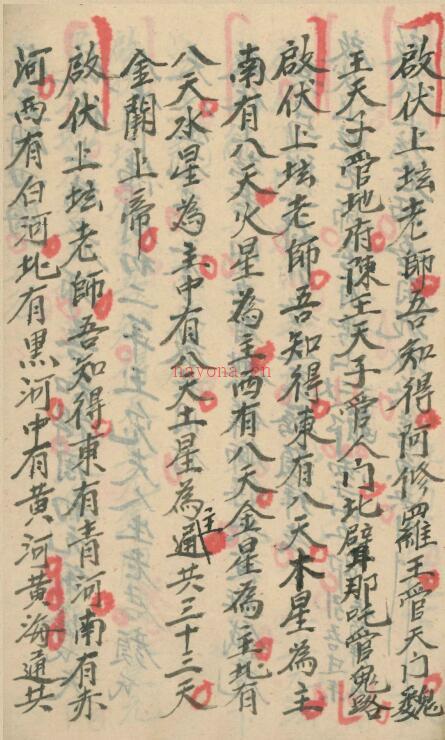 啟伏上坛老師吾知得阿修羅王管天门魏
王天子管地府陳王天子管人门北臂那吒管鬼路
啟伏上坛老師吾知得東有八天木星為主
南有八天火星為主西有八天金星為主北有
八天水星為主中有八天土星為主通共三十三天
金闕上帝
啟伏上坛老師吾知得東有青河南有赤
河西有白河北有黒河中有黄河黄海通共
nayona.cn